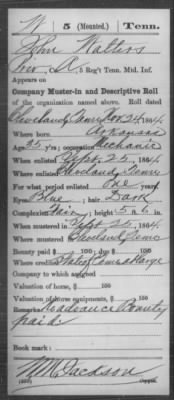 W 5 (Mounted.) Tenn.
John Walters
Priv, A, 5 Reg't Tenn. Mtd. Inf.
Appears on
Company Muster-in and Descriptive Roll
of the organization named above. Roll dated
Cleveland, Tenn, Nov 24, 1864.
Where born Arkansas
Age 35 y'rs; occupation Mechanic
When enlisted Sept. 25, 1864
Where enlisted Cleveland, Tenn
For what period enlisted One years.
Eyes Blue; hair Dark
Complexion Fair; height 5 ft. 6 in.
When mustered in Sept 25, 1864
Where mustered in Cleveland, Tenn
Bounty paid $ 100; due $ 100
Where credited State Tenn at Large
Company to which assigned
Valuation of horse, $ 100
Valuation of horse equipments, $ 100
Remarks: No advance Bounty
paid.
Book mark:
W M Jackson
Copyist.